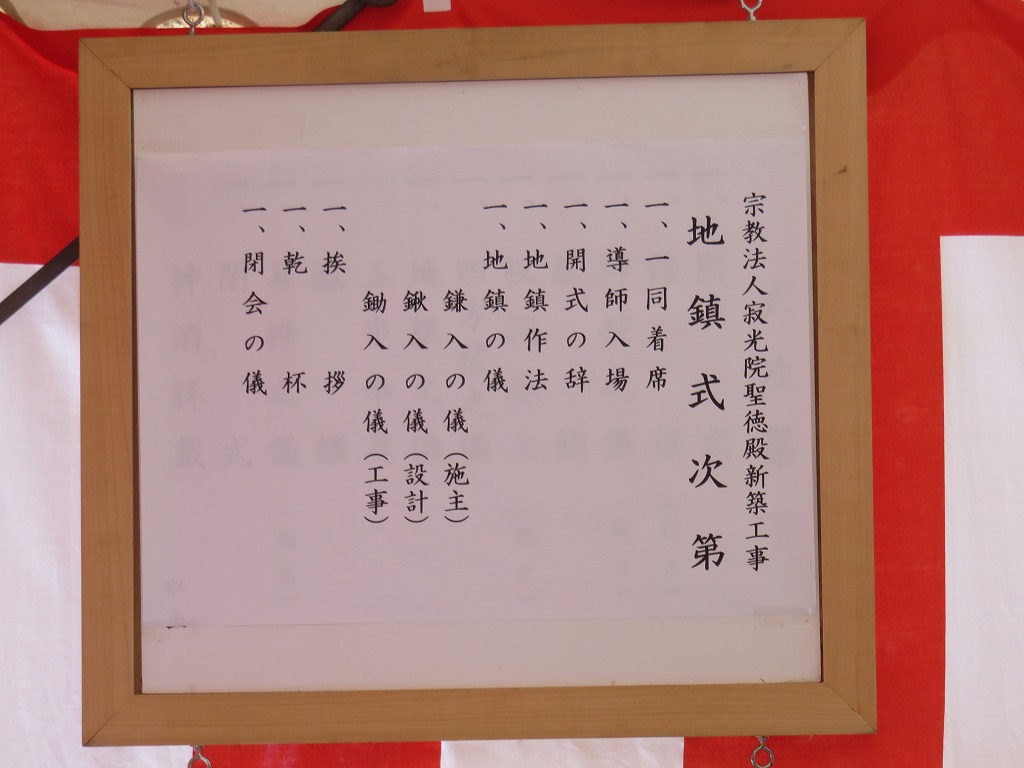 宗教法人寂光院聖徳殿新築工事
地鎮式次第
一、一同着席
一、導師入場
一、開式の辞
一、地鎮作法
一、地鎮の儀
鎌入の儀(施主)
鍬入の儀(設計)
鋤入の儀(工事)
一、挨拶
一、乾杯
一、閉会の儀